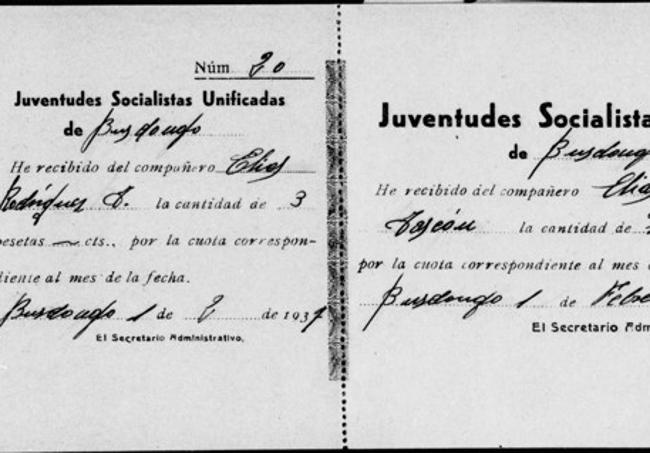 Núm 20
Juventudes Socialistas Unificadas
de Busdongo
He recibido del compañero Elias
Rodríguez T. la cantidad de 3
pesetas — cts., por la cuota correspon-
diente al mes de la fecha.
Busdongo 1 de 2 de 1937
El Secretario Administrativo,
Juventudes Socialista
de Busdong
He recibido del compañero Elias
Tascón la cantidad de
por la cuota correspondiente al mes
Busdongo 1 de Febre
El Secretario Adm